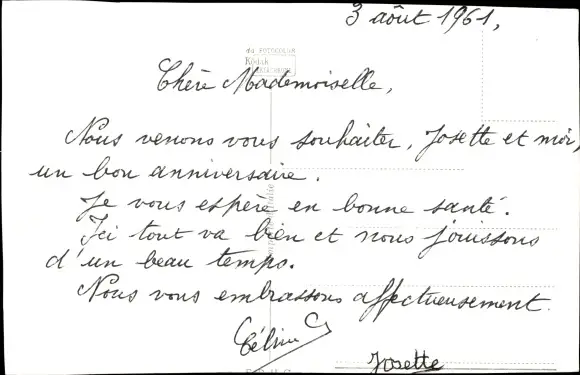 3 août 1961,
du FOTOCOLOR
Kodak
Chère Mademoiselle,
Nous venons vous souhaiter, Josette et moi,
un bon anniversaire.
Je vous espère en bonne santé.
Ici tout va bien et nous jouissons
d'un beau temps.
Nous vous embrassons affectueusement.
Céline
Josette